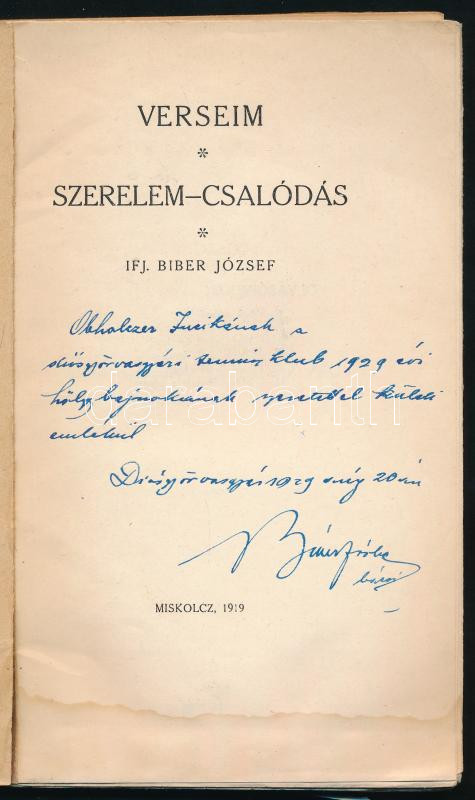 VERSEIM
*
SZERELEM–CSALÓDÁS
*
IFJ. BIBER JÓZSEF
Obholczer Zsuzsikának a
diósgyőrvasgyári tennis klub 1929 évi
hölgybajnokának szeretettel küldi
emlékül
Diósgyőrvasgyár 1929 aug 20án
MISKOLCZ, 1919
darabanth